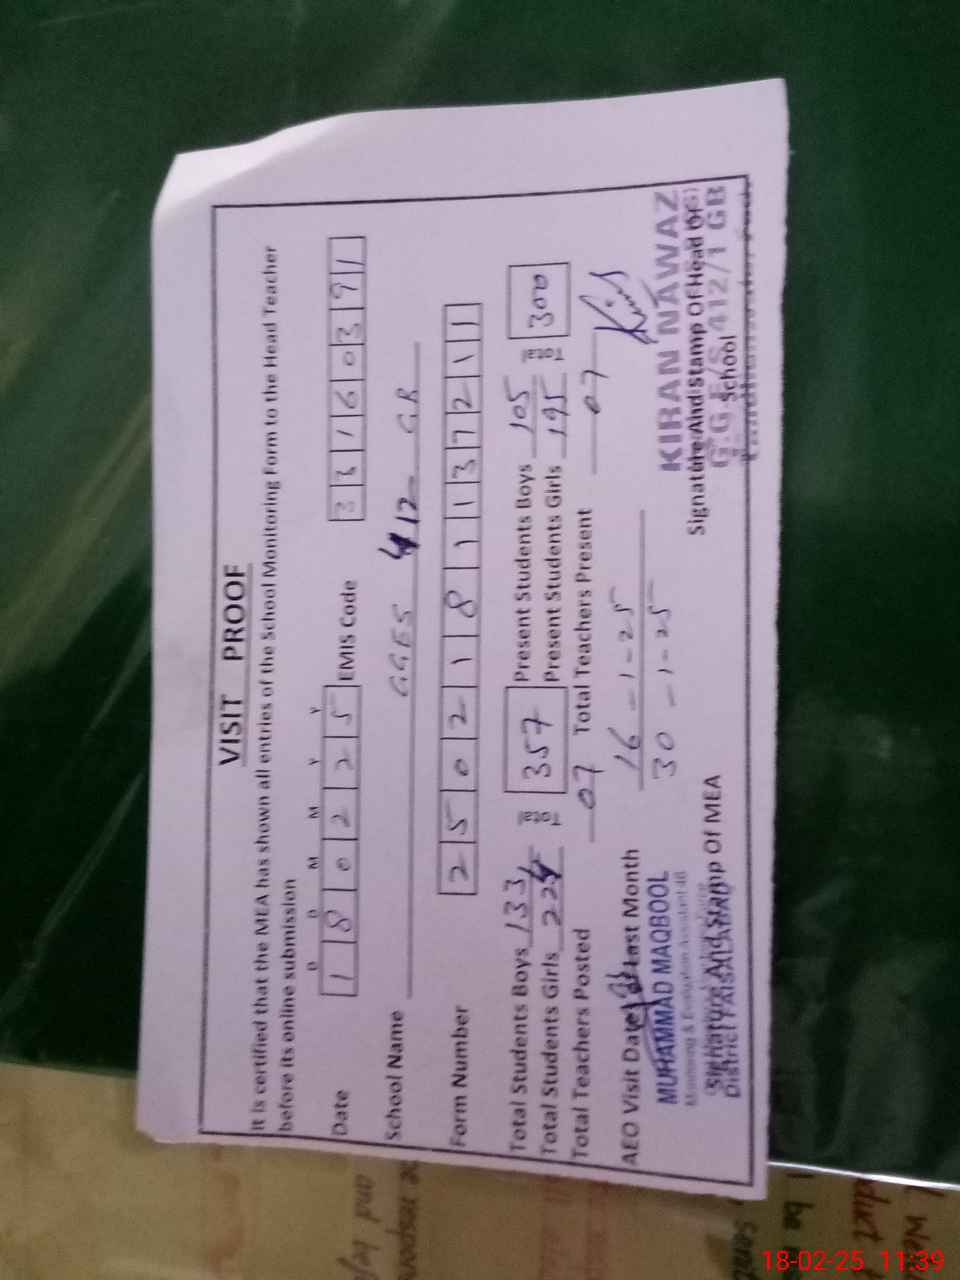 VISIT PROOF
It is certified that the MEA has shown all entries of the School Monitoring Form to the Head Teacher
before its online submission
D D M M Y Y
Date 1 8 0 2 2 5 EMIS Code 3 3 1 6 0 3 9 1
School Name GGES 412 GB
Form Number 2 5 0 2 1 8 1 1 3 7 2 1 1
Total Students Boys 133 Total 357 Present Students Boys 105 Total 300
Total Students Girls 224 Present Students Girls 195
Total Teachers Posted 07 Total Teachers Present 07
AEO Visit Date of Last Month 16-1-25
30-1-25
MUHAMMAD MAQBOOL
Monitoring & Evaluation Assistant-46
Signature And Stamp Of MEA
District FAISALABAD
KIRAN NAWAZ
Signature And Stamp Of Head Of
G.G.E/S 412/1 GB
School
18-02-25 11:39